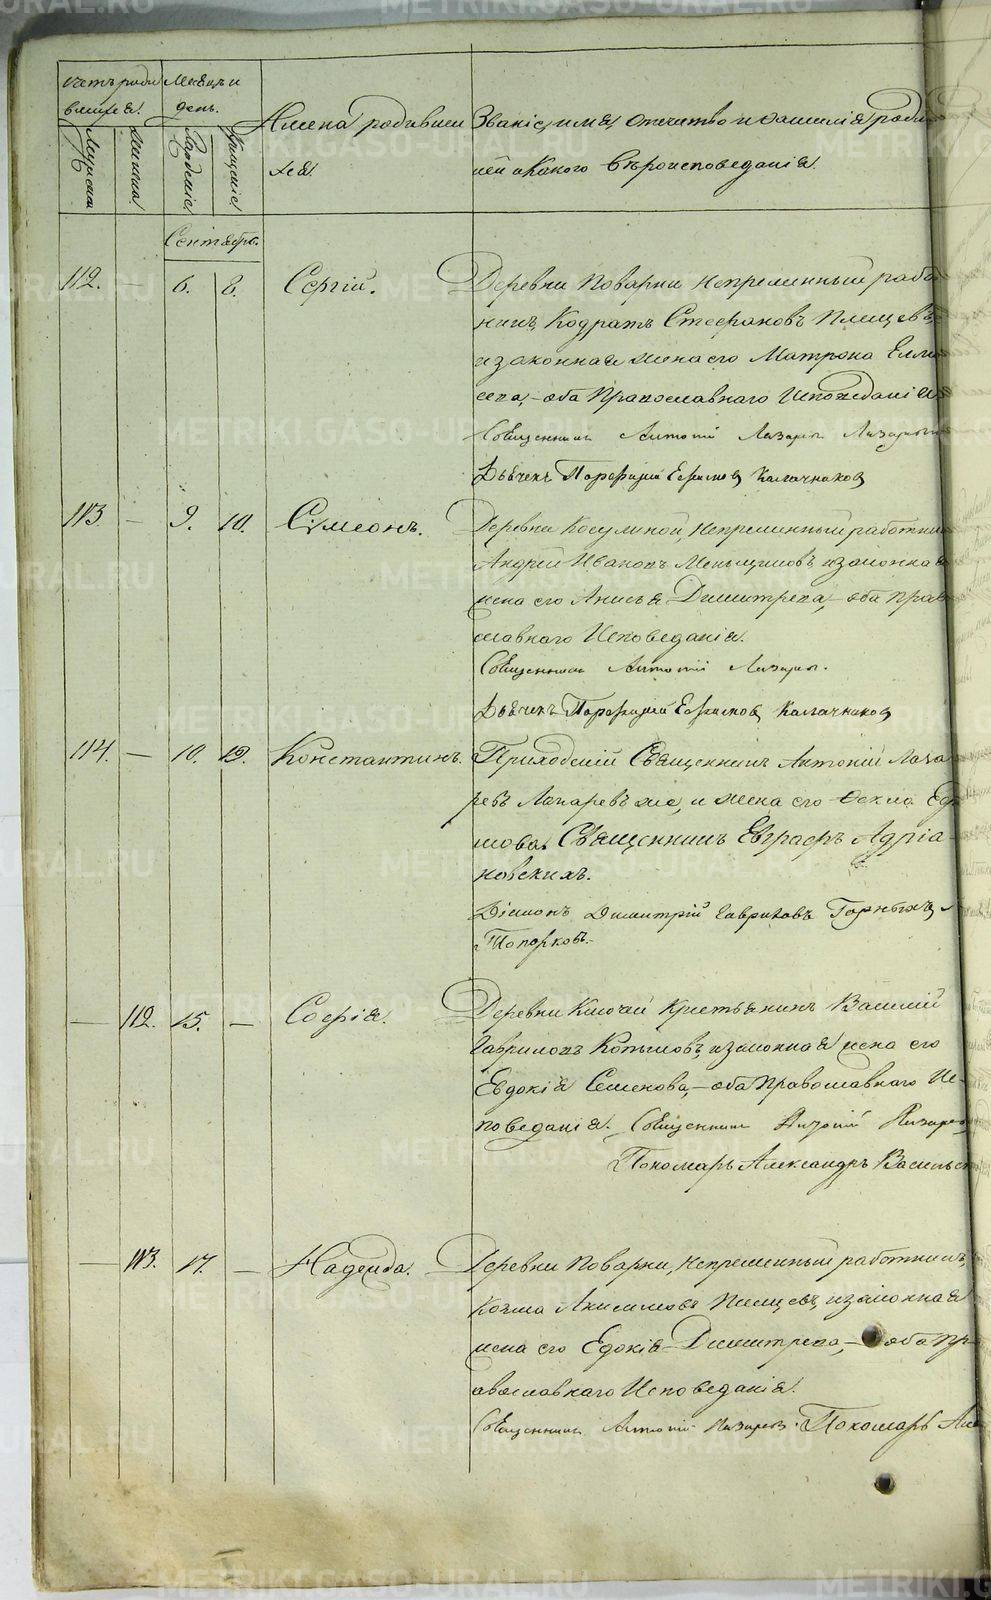 METRIKI.GASO-URAL.RU
Счетъ роди
вшихся.
Мѣсяцъ и
день.
Имена родивших
ся.
Званіе, имя, отчество и фамилія роди
лей и какого вѣроисповеданія.
Мужеска
Женска
Рожденіе
Крещеніе
Сентябрь.
112. — 6. 8. Сергій.
Деревни Поварни Непременный рабо
никъ Кодратъ Стефановъ Плещевъ
и законная жена его Матрона Елли
сева, оба Православнаго Исповеданія
Священникъ Антоній Лазаревъ Лазаревъ
Дьячекъ Порфирій Ефимовъ Калачниковъ
113. — 9. 10. Сумеонъ.
Деревни Косулиной, Непременный работник
Андрей Ивановъ Меньщиковъ и законная
жена его Анисья Димитрева, — оба Право
славнаго Исповеданія.
Священникъ Антоній Лазаревъ.
Дьячекъ Порфирій Ефимовъ Калачниковъ
114. — 10. 12. Константинъ.
Приходскій Священникъ Антоній Лаза
ревъ Лазаревъ же, и жена его Фекла Еф
имова. Священникъ Евграфъ Адріа-
новскихъ.
Діаконъ Димитрій Гавриловъ Горныхъ
Топорковъ.
— 112. 15. — Софія.
Деревни Ключей Крестьянинъ Василій
Гавриловъ Копыловъ, и законная жена его
Евдокія Семенова, — оба Православнаго Ис-
поведанія. Священникъ Антоній Лазаревъ
Пономарь Александръ Васильев
— 113. 17. — Надежда.
Деревни Поварни, Непременный работникъ
Козма Акисимовъ Плещевъ, и законная
жена его Едокія Димитрева, — оба Пр
авославнаго Исповеданія.
Священникъ Антоній Лазаревъ. Пономарь Але